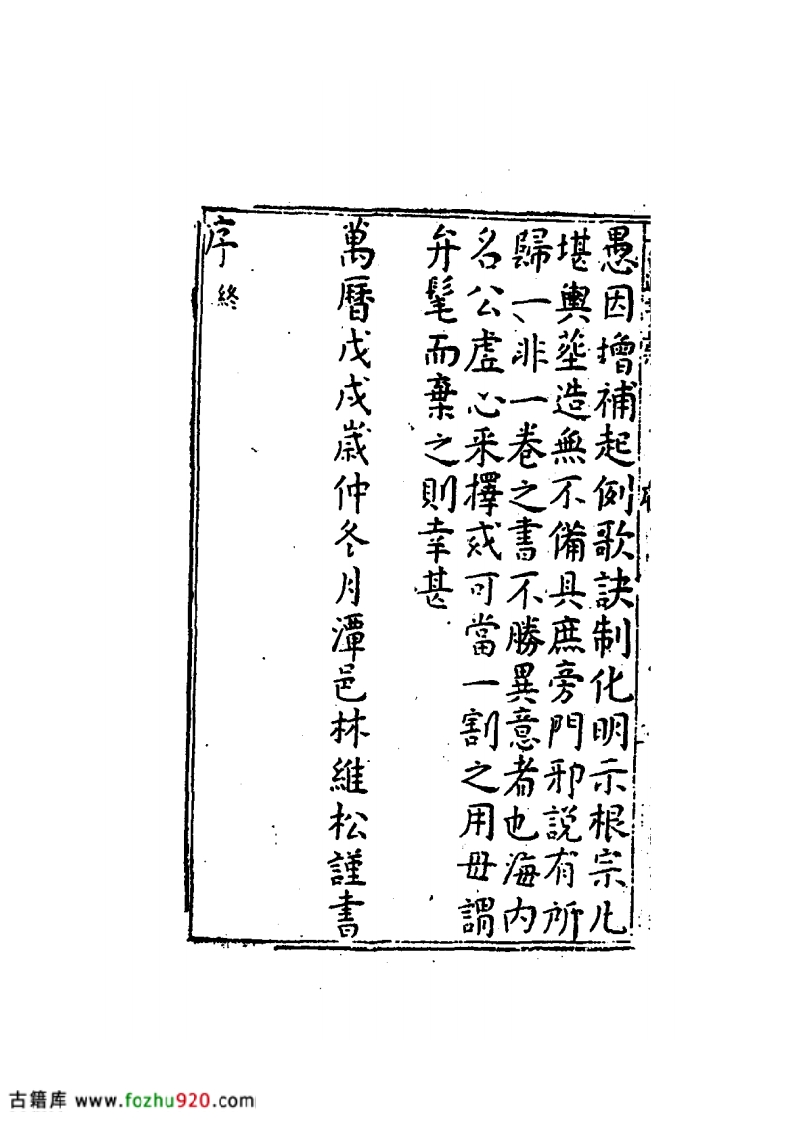 愚因增補起例歌訣制化明示根宗凡
堪輿塋造無不備具庶旁門邪說有所
歸一非一卷之書不勝異意者也海内
名公虛心采擇或可當一割之用毋謂
弁髦而棄之則幸甚
萬曆戊戌歲仲冬月潭邑林維松謹書
序終
古籍库 www.fozhu920.com